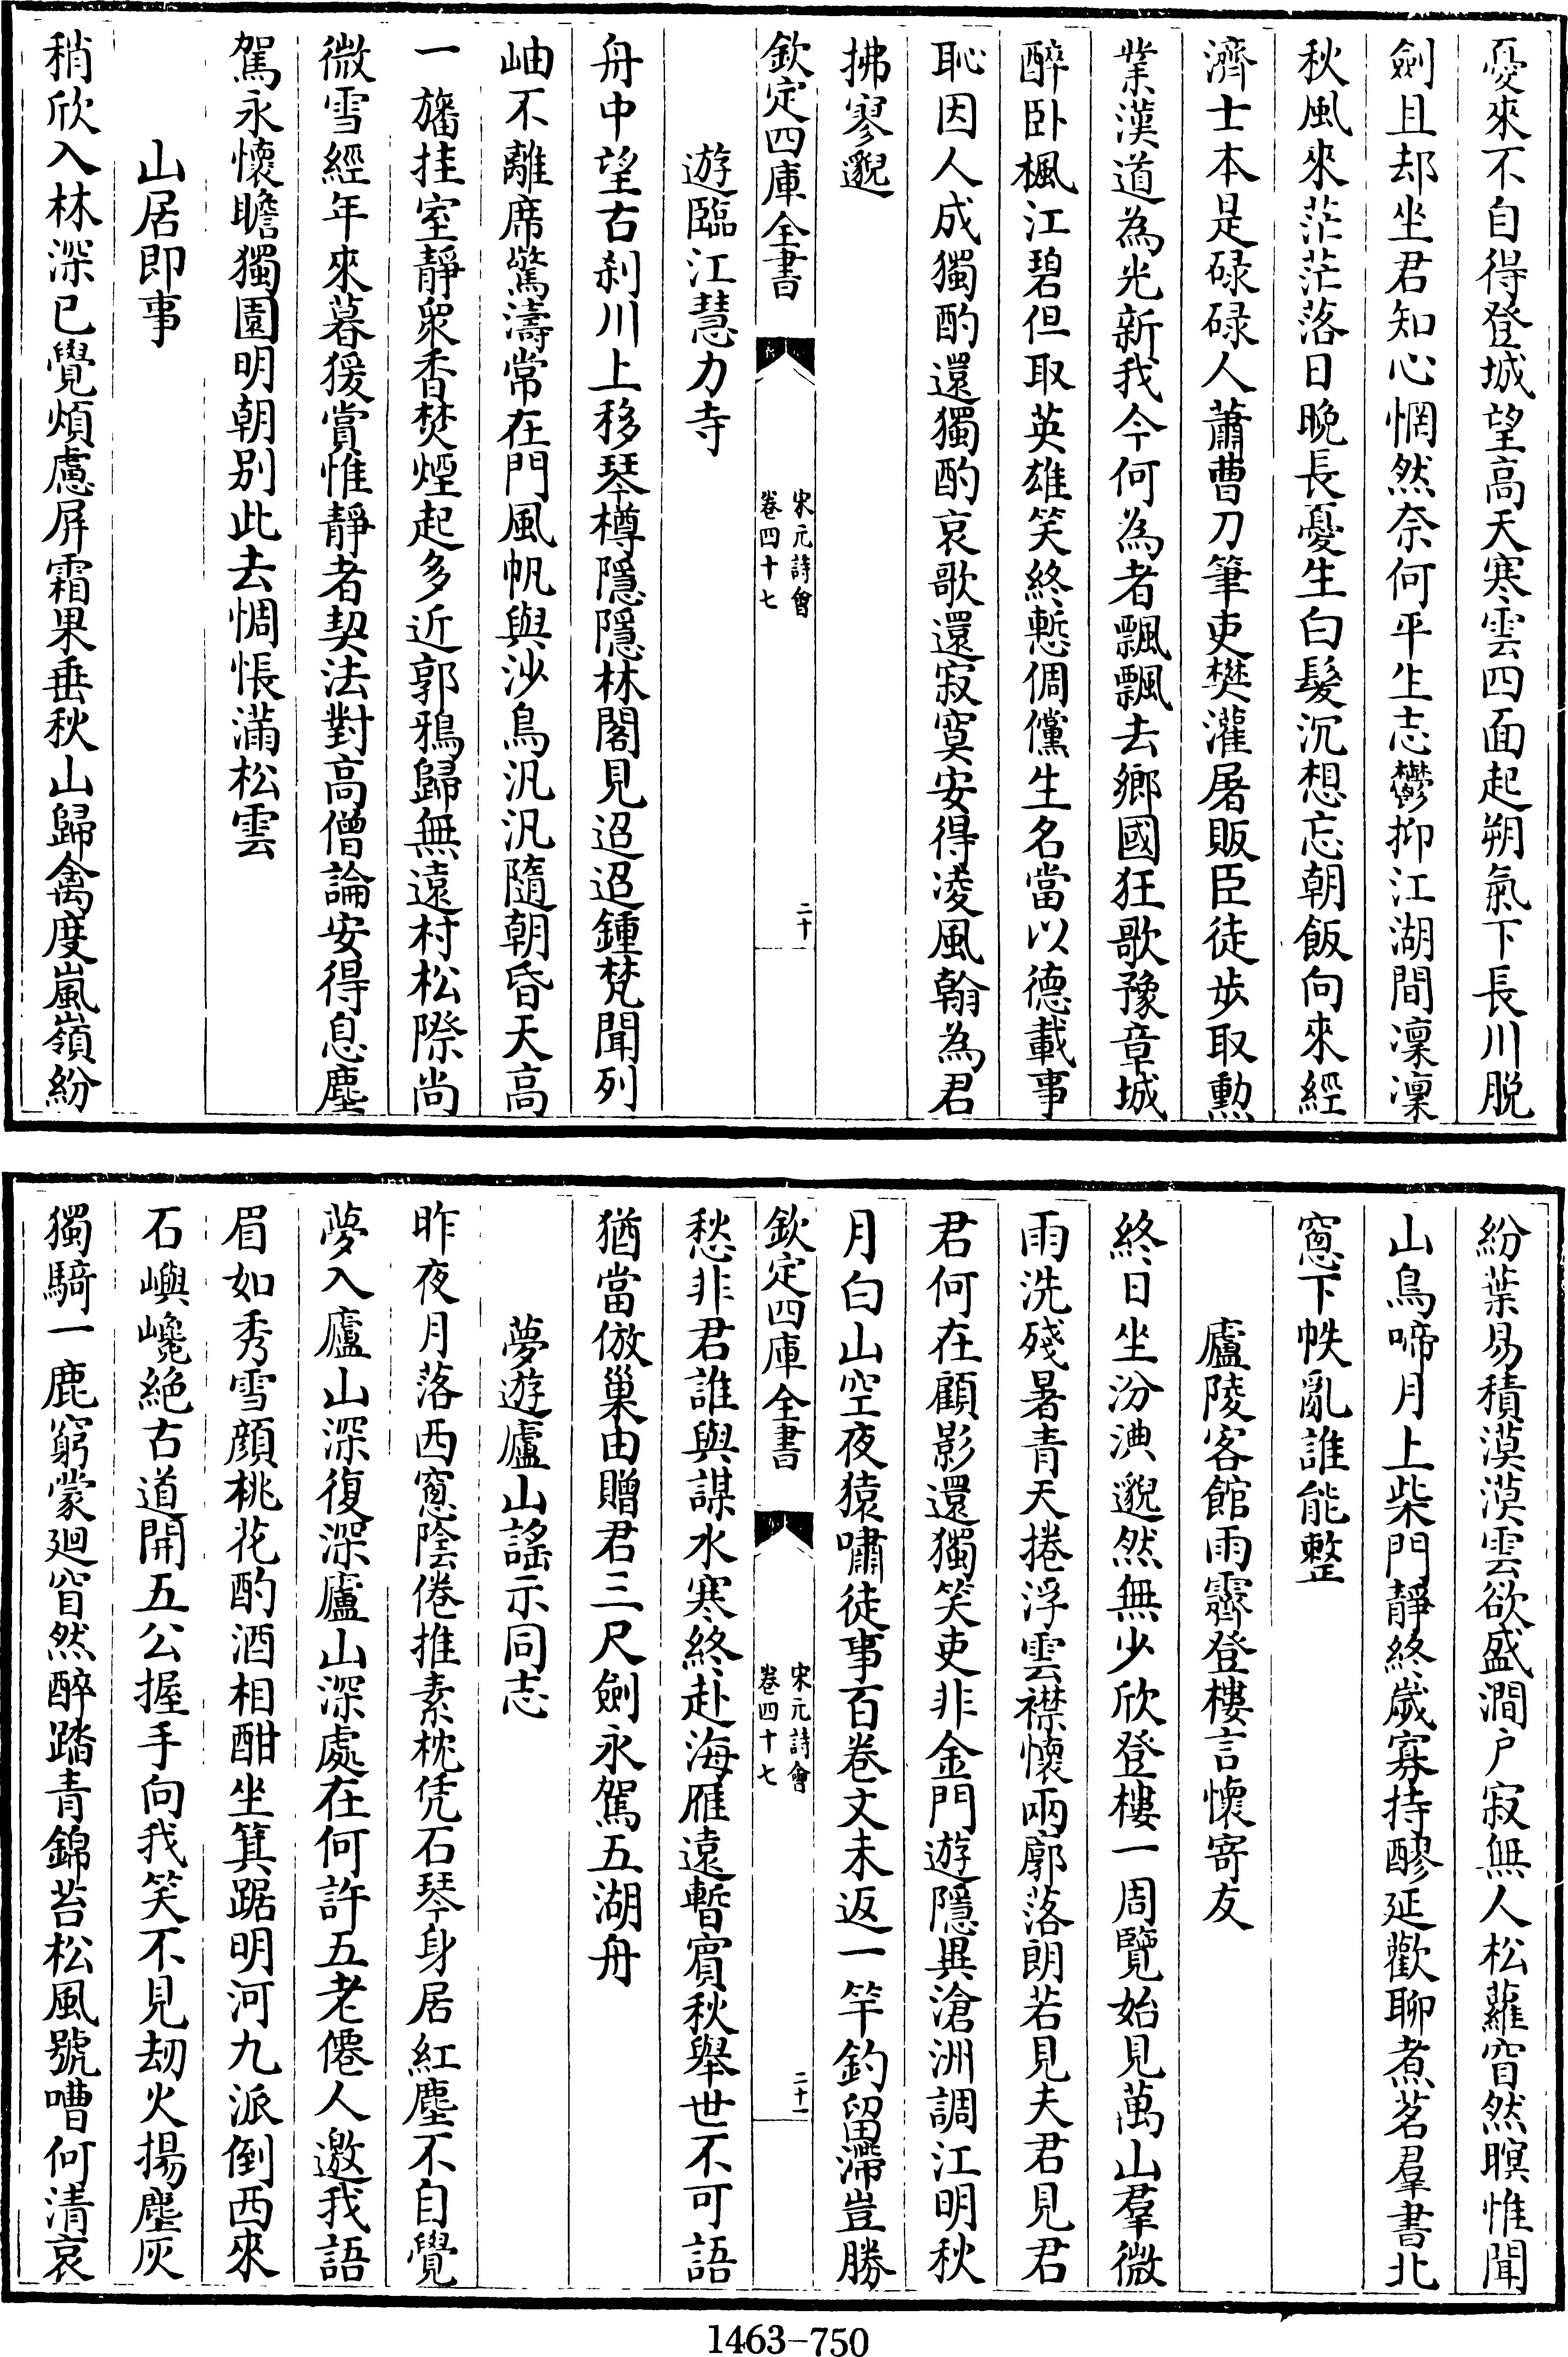 憂來不自得登城望高天寒雲四面起朔氣下長川脱
劍且却坐君知心惘然奈何平生志鬱抑江湖間凜凜
秋風來茫茫落日晚長憂生白髮沉想忘朝飯向來經
濟士本是碌碌人蕭曹刀筆吏樊灌屠販臣徒步取勲
業漢道為光新我今何為者飄飄去鄉國狂歌豫章城
醉卧楓江碧但取英雄笑終慙倜儻生名當以德載事
恥因人成獨酌還獨酌哀歌還寂寞安得凌風翰為君
拂寥邈
欽定四庫全書
宋元詩會
卷四十七
二十
遊臨江慧力寺
舟中望古刹川上移琴樽隱隱林閣見迢迢鍾梵聞列
岫不離席驚濤常在門風帆與沙鳥汎汎隨朝昏天高
一旛挂室靜衆香焚煙起多近郭鴉歸無遠村松際尚
微雪經年來暮猨賞惟靜者契法對高僧論安得息塵
駕永懷瞻獨園明朝别此去惆悵滿松雲
山居即事
稍欣入林深已覺煩慮屏霜果垂秋山歸禽度嵐嶺紛
紛葉易積漠漠雲欲盛澗户寂無人松蘿窅然瞑惟聞
山鳥啼月上柴門靜終歲寡持醪延歡聊煮茗羣書北
窻下帙亂誰能整
廬陵客館雨霽登樓言懷寄友
終日坐汾㴐邈然無少欣登樓一周覽始見萬山羣微
雨洗殘暑青天捲浮雲襟懷兩廓落朗若見夫君見君
君何在顧影還獨笑吏非金門遊隱異滄洲調江明秋
月白山空夜猿嘯徒事百卷文未返一竿釣留滯豈勝
欽定四庫全書
宋元詩會
卷四十七
二十一
愁非君誰與謀水寒終赴海雁遠暫賔秋舉世不可語
猶當倣巢由贈君三尺劍永駕五湖舟
夢遊廬山謡示同志
昨夜月落西窻陰倦推素枕凭石琴身居紅塵不自覺
夢入廬山深復深廬山深處在何許五老僊人邀我語
眉如秀雪顔桃花酌酒相酣坐箕踞明河九派倒西來
石嶼巉絶古道開五公握手向我笑不見刼火揚塵灰
獨騎一鹿窮蒙廻窅然醉踏青錦苔松風號嘈何清哀
1463-750